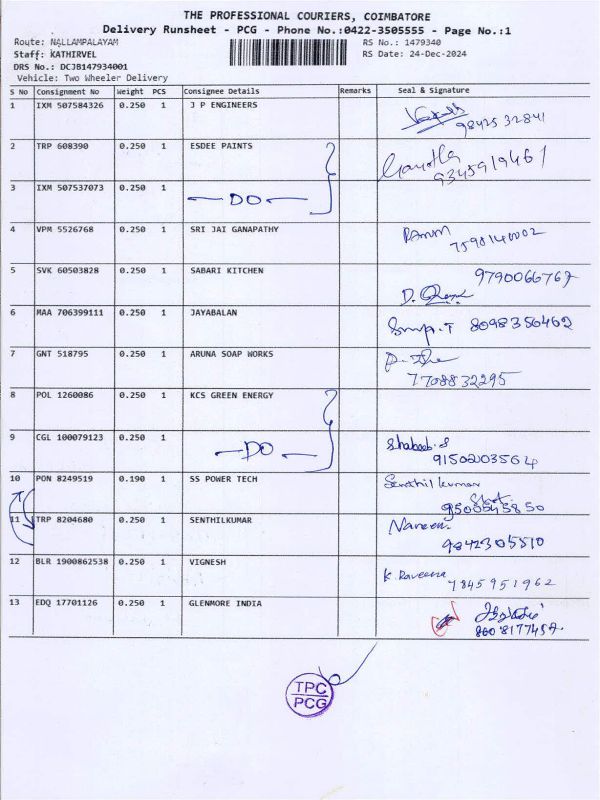 THE PROFESSIONAL COURIERS, COIMBATORE
Delivery Runsheet - PCG - Phone No.:0422-3505555 - Page No.:1
Route: NALLAMPALAYAM
RS No.: 1479340
Staff: KATHIRVEL
RS Date: 24-Dec-2024
DRS No.: DCJB147934001
Vehicle: Two Wheeler Delivery
S No Consignment No Weight PCS Consignee Details Remarks Seal & Signature
1 IXM 507584326 0.250 1 J P ENGINEERS
9842532841
2 TRP 608390 0.250 1 ESDEE PAINTS
9345919461
3 IXM 507537073 0.250 1 — DO —
4 VPM 5526768 0.250 1 SRI JAI GANAPATHY
7598140002
5 SVK 60503828 0.250 1 SABARI KITCHEN 9790066767
6 MAA 706399111 0.250 1 JAYABALAN 8098356462
7 GNT 518795 0.250 1 ARUNA SOAP WORKS
7708832295
8 POL 1260086 0.250 1 KCS GREEN ENERGY
9 CGL 100079123 0.250 1 — DO — Shabeeb.S
9150203564
10 PON 8249519 0.190 1 SS POWER TECH Senthil kumar
11 TRP 8204680 0.250 1 SENTHILKUMAR Naveen
9842305510
12 BLR 1900862538 0.250 1 VIGNESH K. Raveena 7845951962
13 EDQ 17701126 0.250 1 GLENMORE INDIA
8608177457
TPC
PCG